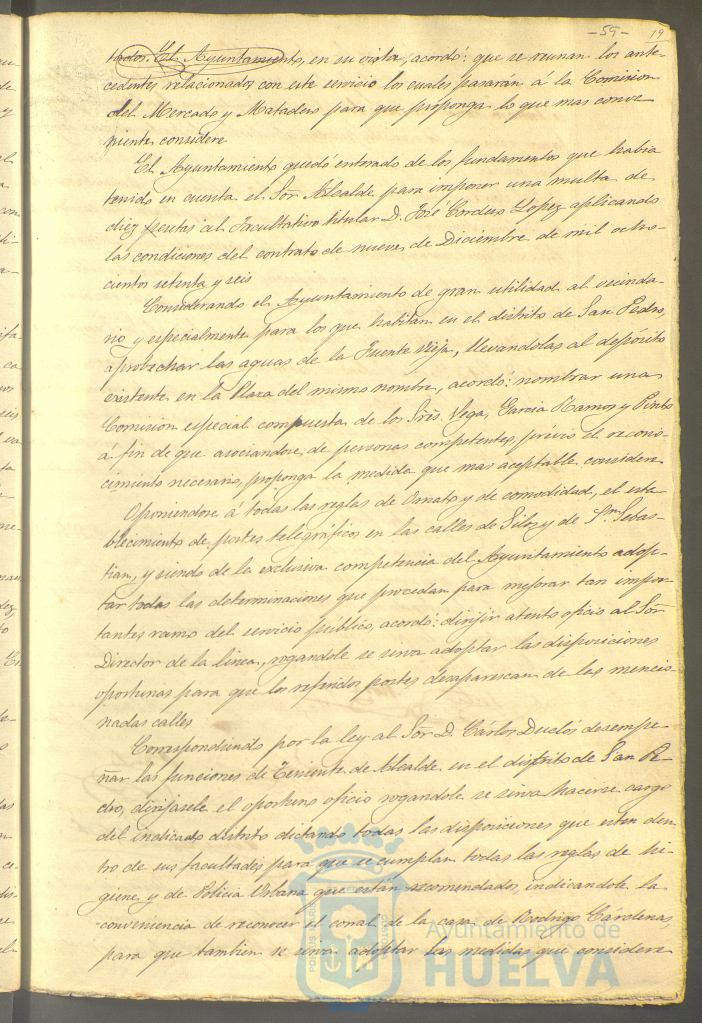 -59- 19
tados. El Ayuntamiento, en su vista, acordó: que se reunan los ante-
cedentes relacionados con este servicio los cuales pasarán á la Comision
del Mercado y Matadero para que proponga lo que mas conve-
niente considere
El Ayuntamiento quedó enterado de los fundamentos que habia
tenido en cuenta el Sor Alcalde para imponer una multa de
diez pesetas al Facultativo titular D. José Cordero Lopez aplicando
las condiciones del contrato de nueve de Diciembre de mil ocho-
cientos setenta y seis
Considerando el Ayuntamiento de gran utilidad al vecinda-
rio y especialmente para los que habitan en el distrito de San Pedro,
aprovechar las aguas de la Fuente Vieja, llevandolas al depósito
existente en la Plaza del mismo nombre, acordó: nombrar una
Comision especial compuesta de los Sres. Vega, Garcia Ramos y Pinto
á fin de que asociandose de personas competentes, prévio el recono-
cimiento necesario, proponga la medida que mas aceptable consideren
Oponiendose á todas las reglas de Ornato y de comodidad, el esta-
blecimiento de postes telegráficos en las calles de Silos y de San Sebas-
tian, y siendo de la exclusiva competencia del Ayuntamiento adop-
tar todas las determinaciones que procedan para mejorar tan impor-
tantes ramo del servicio público, acordó: dirijir atento oficio al Sor
Director de la linea, rogandole se sirva adoptar las disposiciones
oportunas para que los referidos postes desaparezcan de las mencio-
nadas calles
Correspondiendo por la ley al Sor D. Cárlos Ducló, desempe-
ñar las funciones de Teniente de Alcalde en el distrito de San Pe-
dro, dirijasele el oportuno oficio rogandole se sirva hacerse cargo
del indicado distrito dictando todas las disposiciones que esten den-
tro de sus facultades para que se cumplan todas las reglas de hi-
giene y de Policia Urbana que están recomendadas, indicandole la
conveniencia de reconocer el corral de la casa de Rodrigo Cárdenas,
para que tambien se sirva adoptar las medidas que considere
Ayuntamiento de
HUELVA